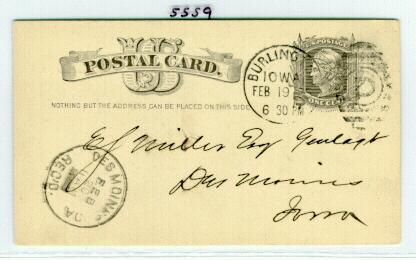 5559
US
POSTAL CARD.
NOTHING BUT THE ADDRESS CAN BE PLACED ON THIS SIDE
U.S. POSTAGE
ONE CENT
BURLING
IOWA
FEB 19
6 30 PM
E S Miller Esq
Des Moines
Iowa
DES MOINES
REC'D.
FEB